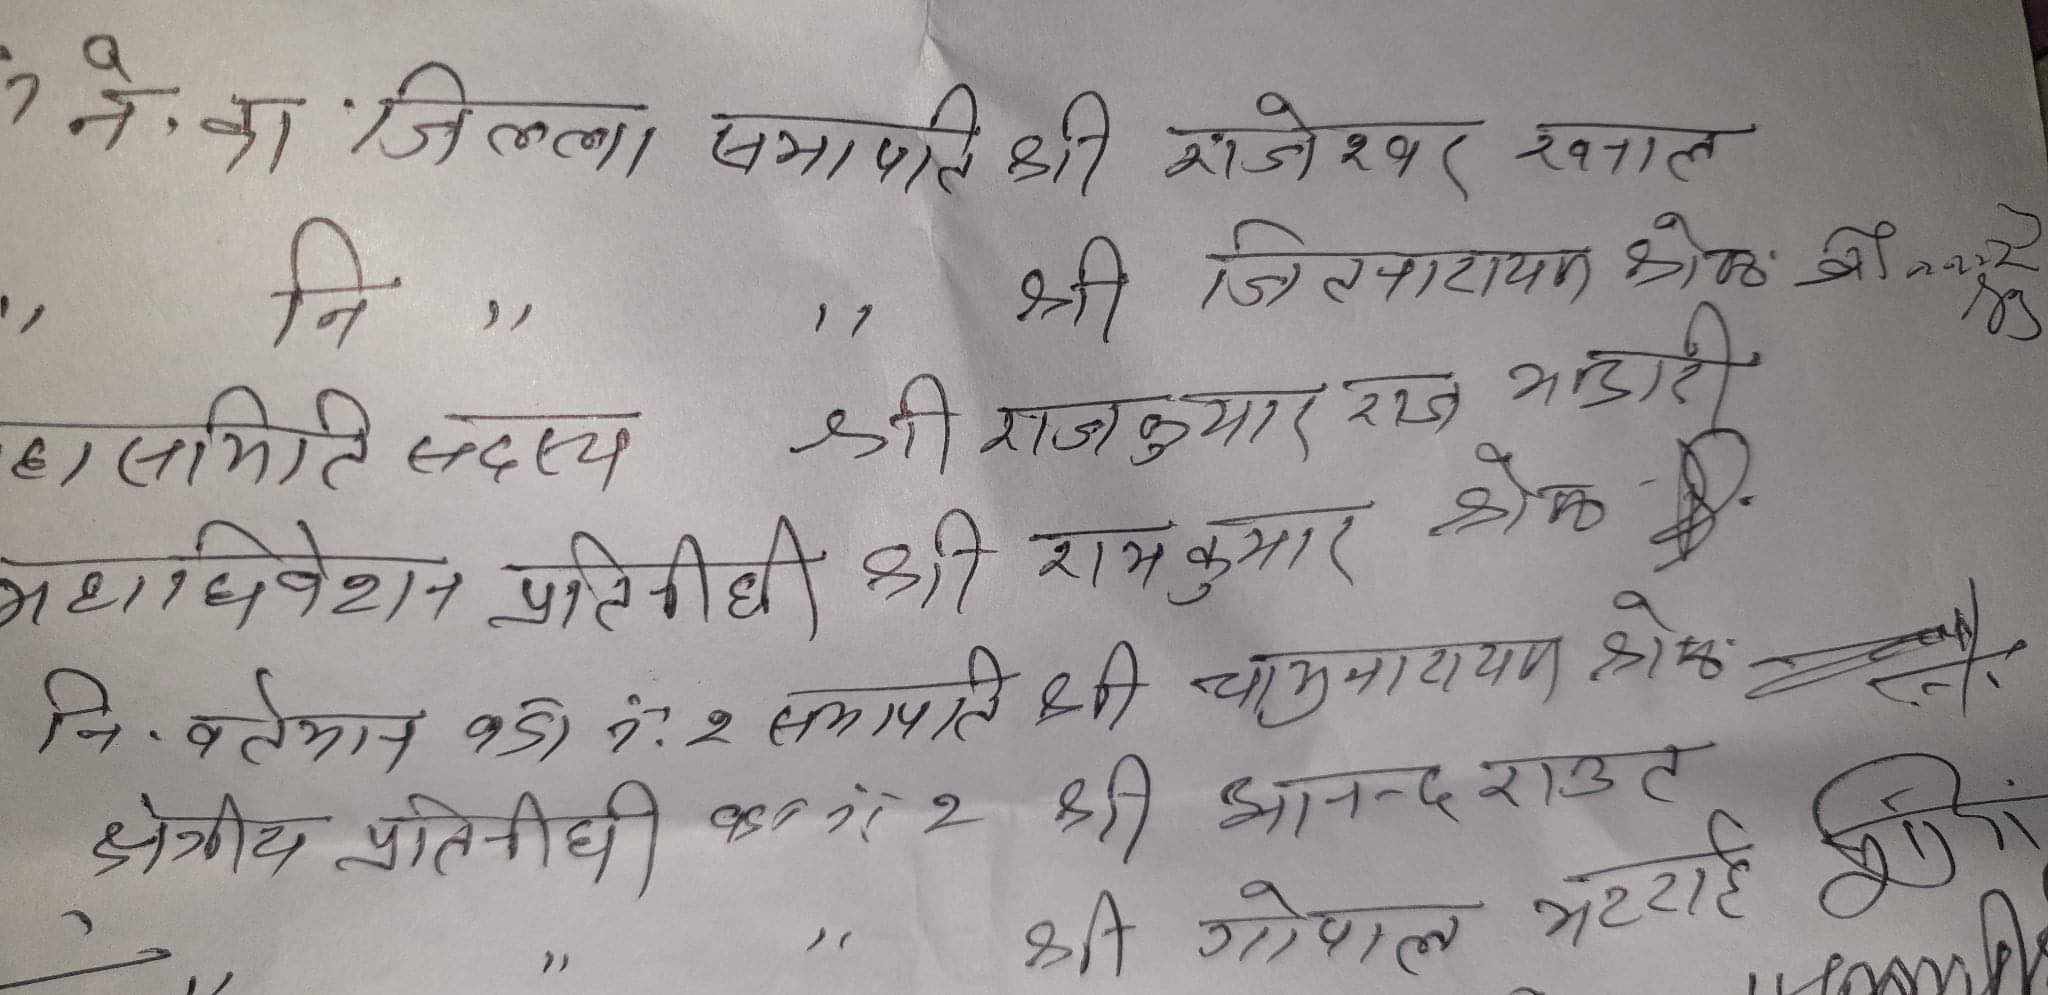 ने. का जिल्ला सभापति श्री राजेश्वर खनाल
" नि " " श्री जितनारायण श्रेष्ठ
हासमिति सदस्य श्री राजकुमार राज भण्डारी
महाधिवेशन प्रतिनीधी श्री रामकुमार श्रेष्ठ
नि. वर्तमान वडा नं. २ सभापति श्री चामुनारायण श्रेष्ठ
क्षेत्रीय प्रतिनीधी नं २ श्री आनन्द राउत
" " " श्री गोपाल भट्टराई